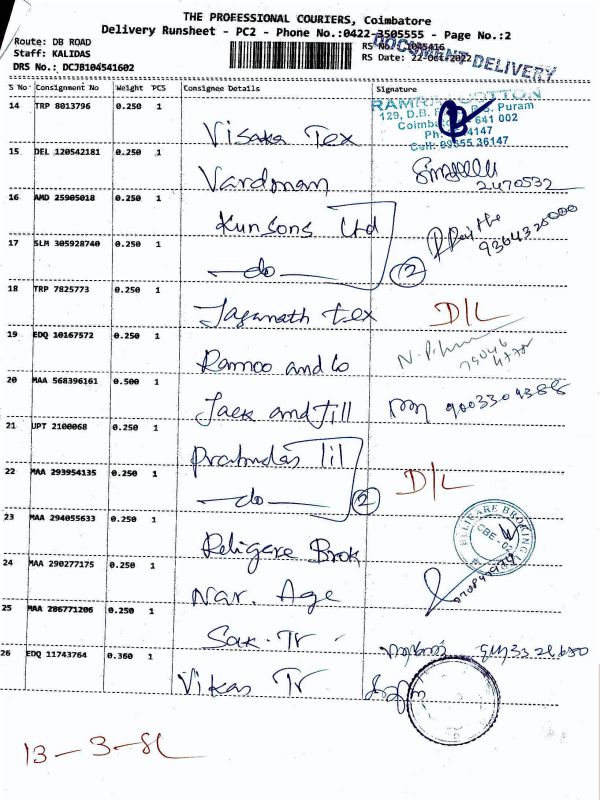 THE PROFESSIONAL COURIERS, Coimbatore
Delivery Runsheet - PC2 - Phone No.:0422-3505555 - Page No.:2
Route: DB ROAD
Staff: KALIDAS
DRS No.: DCJB104541602
RS No. 1045416
RS Date: 22-Oct-2022
DOCUMENT DELIVERY
S No Consignment No Weight PCS Consignee Details Signature
14 TRP 8013796 0.250 1 Visaka Tex
129, D.B. Puram
641 002
Ph: 4147
Cell: 36147
15 DEL 120542181 0.250 1 Vardman 2470532
16 AMD 25905018 0.250 1 Kunsons Ltd 9364325000
17 SLM 305928740 0.250 1 —do— 2
18 TRP 7825773 0.250 1 Jaganath Tex D/L
19 EDQ 10167572 0.250 1 Ramoo and Co
20 MAA 568396161 0.500 1 Jack and Jill 9003309388
21 UPT 2100068 0.250 1
22 MAA 293954135 0.250 1 —do— 2 D/L
23 MAA 294055633 0.250 1 Religare Brok
CBE - 02
24 MAA 290277175 0.250 1 Nar. Age
25 MAA 286771206 0.250 1 Sak. Tr
26 EDQ 11743764 0.360 1 Vikas Tr